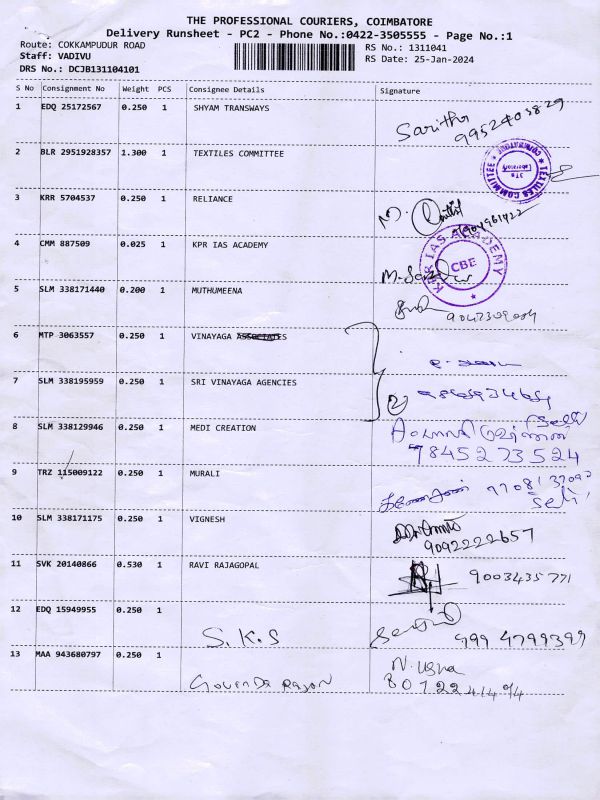 THE PROFESSIONAL COURIERS, COIMBATORE
Delivery Runsheet - PC2 - Phone No.:0422-3505555 - Page No.:1
Route: COKKAMPUDUR ROAD
RS No.: 1311041
Staff: VADIVU
RS Date: 25-Jan-2024
DRS No.: DCJB131104101
S No Consignment No Weight PCS Consignee Details Signature
1 EDQ 25172567 0.250 1 SHYAM TRANSWAYS
Saritha
9952403829
2 BLR 2951928357 1.300 1 TEXTILES COMMITTEE
TEXTILES COMMITTEE
Laboratory
COIMBATORE
3 KRR 5704537 0.250 1 RELIANCE
M.
4 CMM 887509 0.025 1 KPR IAS ACADEMY
KPR IAS ACADEMY
CBE
5 SLM 338171440 0.200 1 MUTHUMEENA
6 MTP 3063557 0.250 1 VINAYAGA
7 SLM 338195959 0.250 1 SRI VINAYAGA AGENCIES
8 SLM 338129946 0.250 1 MEDI CREATION
7845273524
9 TRZ 115009122 0.250 1 MURALI
10 SLM 338171175 0.250 1 VIGNESH
9092222657
11 SVK 20140866 0.530 1 RAVI RAJAGOPAL
9003435771
12 EDQ 15949955 0.250 1 S.K.S
999 4799399
13 MAA 943680797 0.250 1 Govinda Rajan
N. Usha